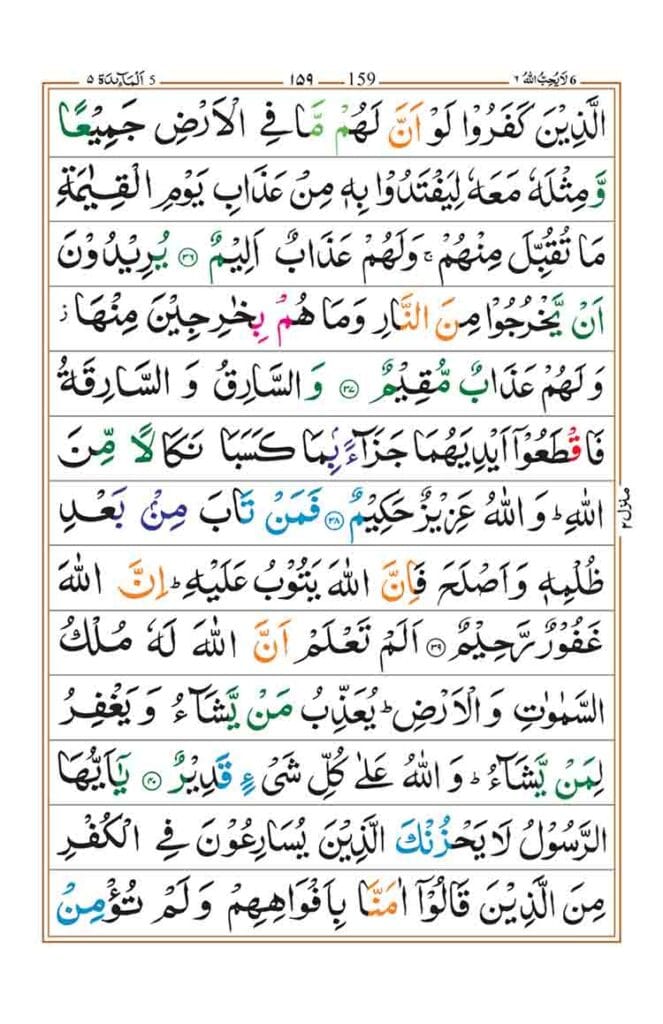 اَلْمَآئِدَة ٥ 5 ١٥٩ 159 لَا يُحِبُّ اللهُ ٦ 6
الَّذِيْنَ كَفَرُوْا لَوْ اَنَّ لَهُمْ مَّا فِي الْاَرْضِ جَمِيْعًا
وَّمِثْلَهٗ مَعَهٗ لِيَفْتَدُوْا بِهٖ مِنْ عَذَابِ يَوْمِ الْقِيٰمَةِ
مَا تُقُبِّلَ مِنْهُمْ ۚ وَلَهُمْ عَذَابٌ اَلِيْمٌ ﴿٣٦﴾ يُرِيْدُوْنَ
اَنْ يَّخْرُجُوْا مِنَ النَّارِ وَمَا هُمْ بِخٰرِجِيْنَ مِنْهَا ز
وَلَهُمْ عَذَابٌ مُّقِيْمٌ ﴿٣٧﴾ وَالسَّارِقُ وَ السَّارِقَةُ
فَاقْطَعُوْٓا اَيْدِيَهُمَا جَزَآءًۢ بِمَا كَسَبَا نَكَالًا مِّنَ
اللهِ ؕ وَ اللهُ عَزِيْزٌ حَكِيْمٌ ﴿٣٨﴾ فَمَنْ تَابَ مِنْۢ بَعْدِ
ظُلْمِهٖ وَاَصْلَحَ فَاِنَّ اللهَ يَتُوْبُ عَلَيْهِ ؕ اِنَّ اللهَ
غَفُوْرٌ رَّحِيْمٌ ﴿٣٩﴾ اَلَمْ تَعْلَمْ اَنَّ اللهَ لَهٗ مُلْكُ
السَّمٰوٰتِ وَ الْاَرْضِ ؕ يُعَذِّبُ مَنْ يَّشَآءُ وَ يَغْفِرُ
لِمَنْ يَّشَآءُ ؕ وَ اللهُ عَلٰى كُلِّ شَيْءٍ قَدِيْرٌ ﴿٤٠﴾ يٰۤاَيُّهَا
الرَّسُوْلُ لَا يَحْزُنْكَ الَّذِيْنَ يُسَارِعُوْنَ فِي الْكُفْرِ
مِنَ الَّذِيْنَ قَالُوْٓا اٰمَنَّا بِاَفْوَاهِهِمْ وَ لَمْ تُؤْمِنْ
منزل ٢